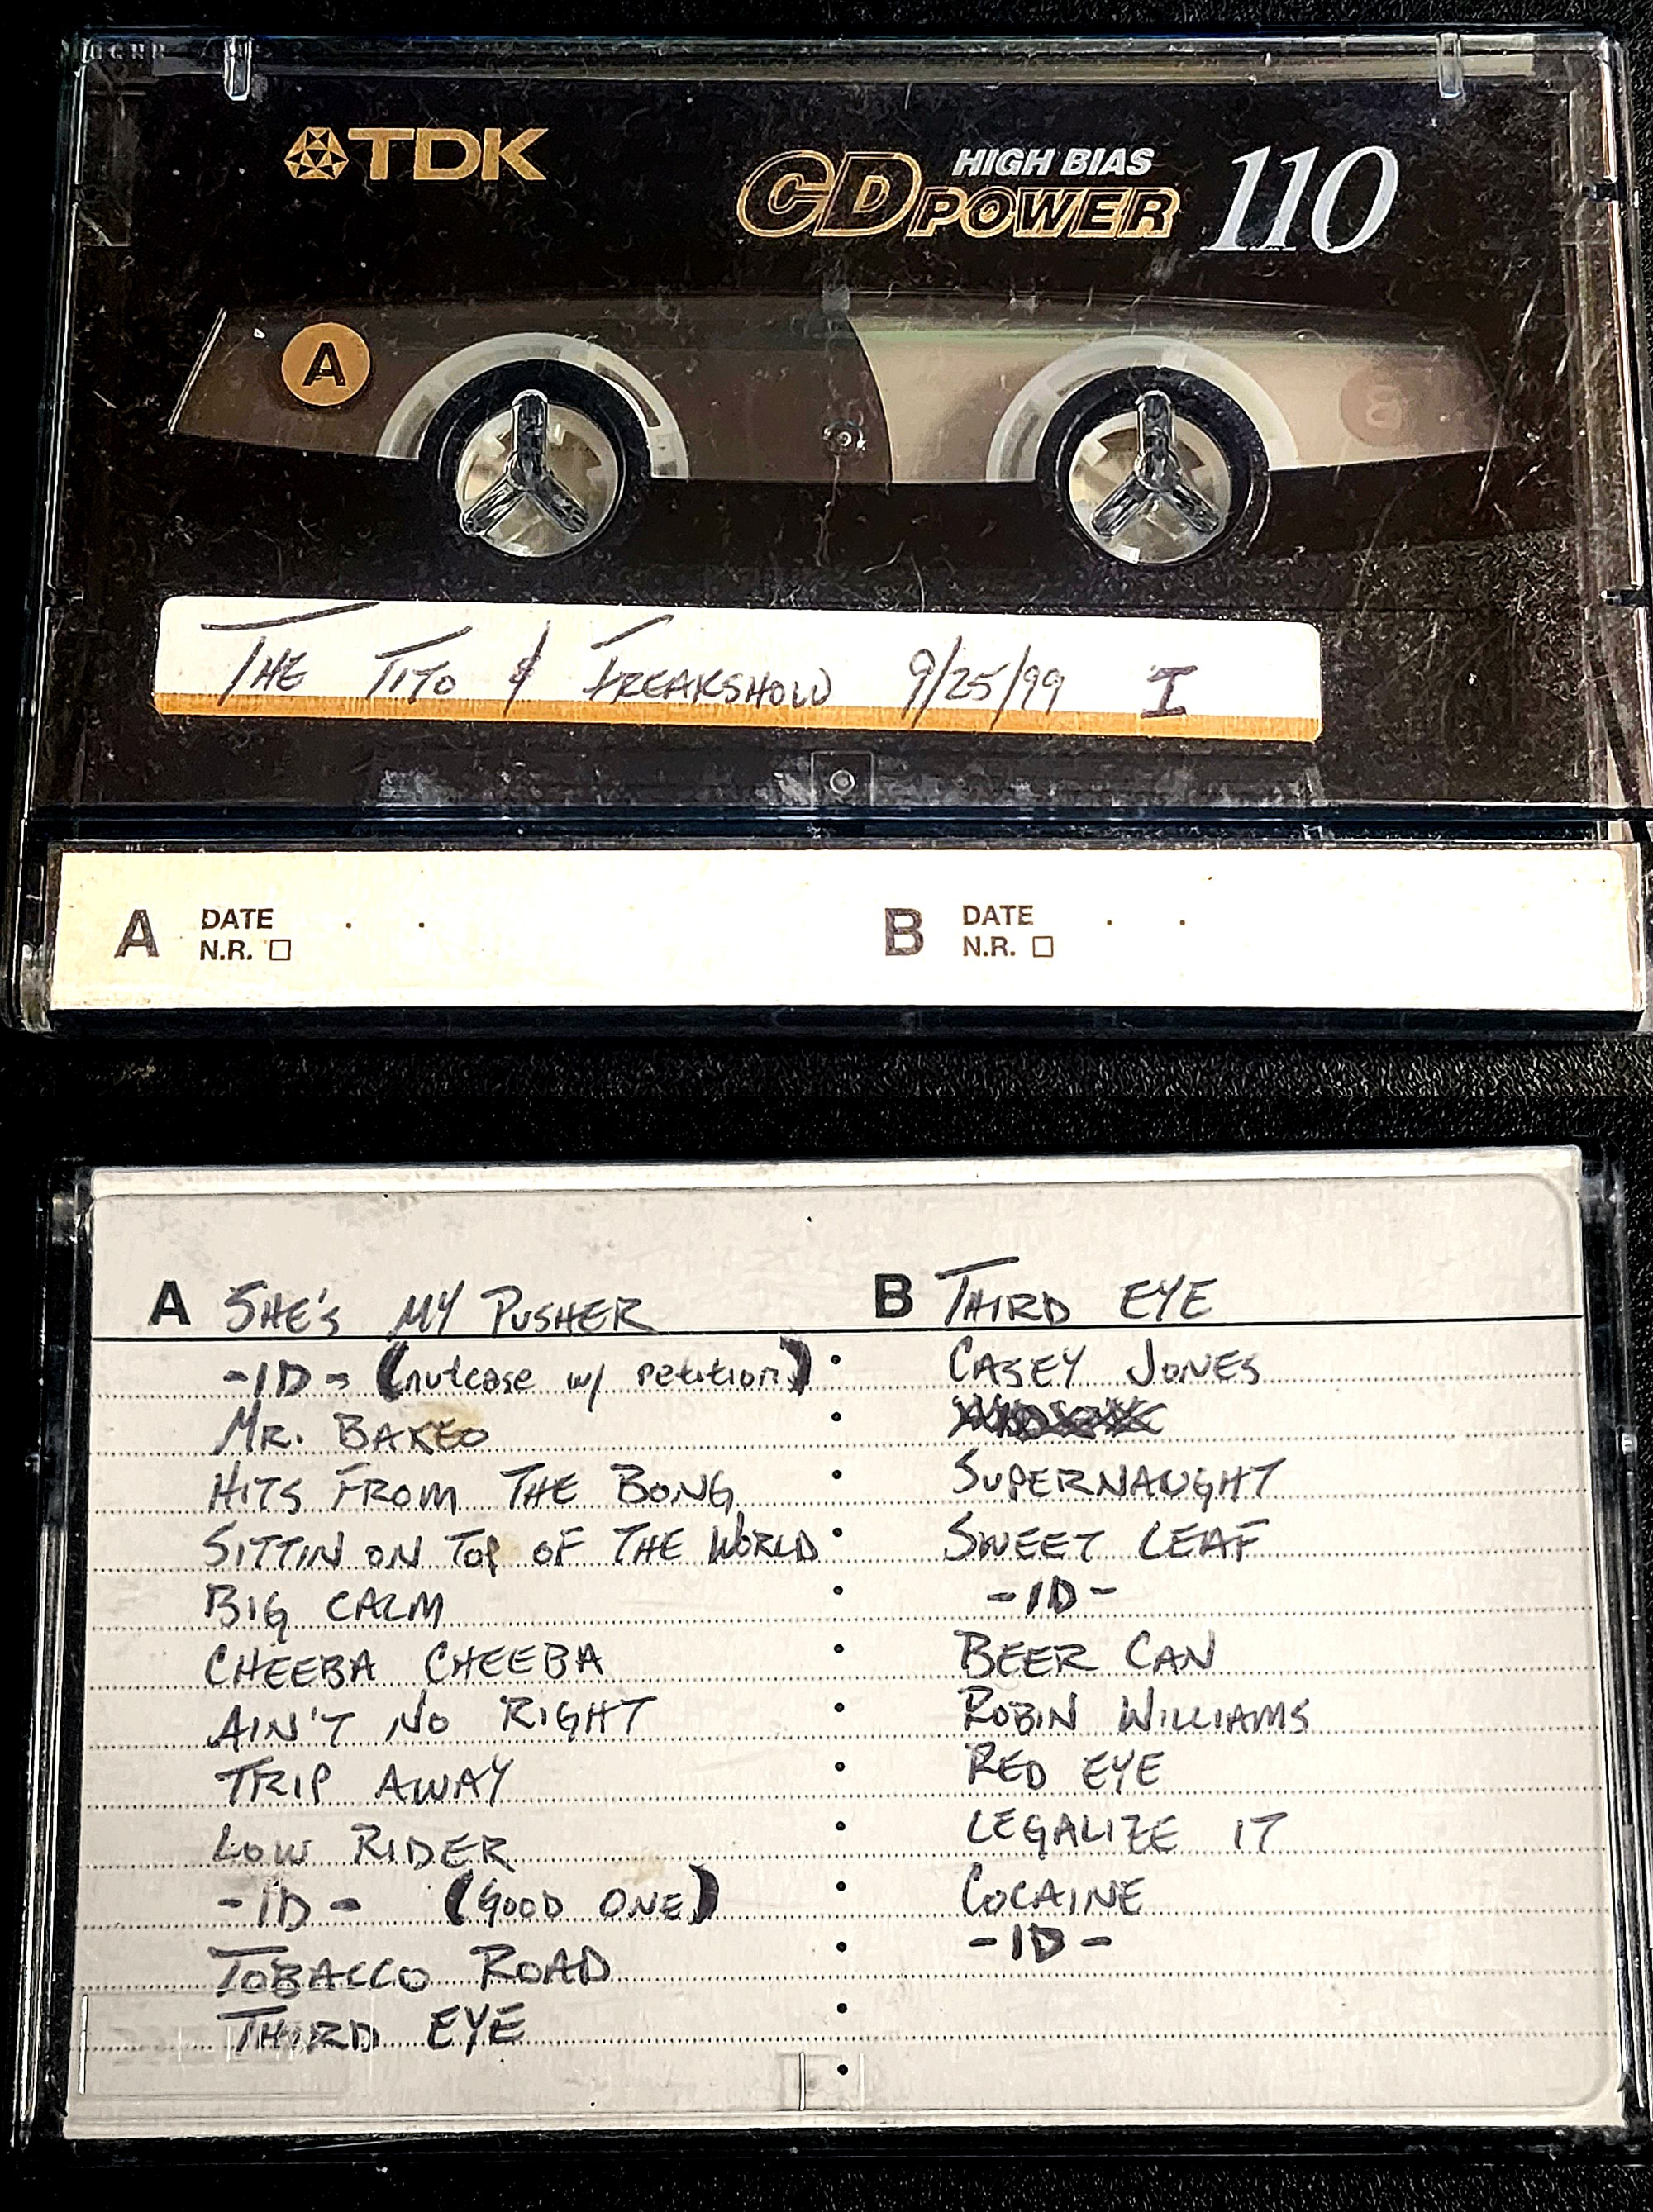 TDK
HIGH BIAS
CD POWER 110
A
THE TITO & FREAKSHOW 9/25/99 I
A DATE . .
N.R. □
B DATE . .
N.R. □
A SHE'S MY PUSHER
-ID- (nutcase w/ petition)
MR. BAKEO
HITS FROM THE BONG
SITTIN ON TOP OF THE WORLD
BIG CALM
CHEEBA CHEEBA
AIN'T NO RIGHT
TRIP AWAY
LOW RIDER
-ID- (GOOD ONE)
TOBACCO ROAD
THIRD EYE
B THIRD EYE
CASEY JONES
SUPERNAUGHT
SWEET LEAF
-ID-
BEER CAN
ROBIN WILLIAMS
RED EYE
LEGALIZE IT
COCAINE
-ID-